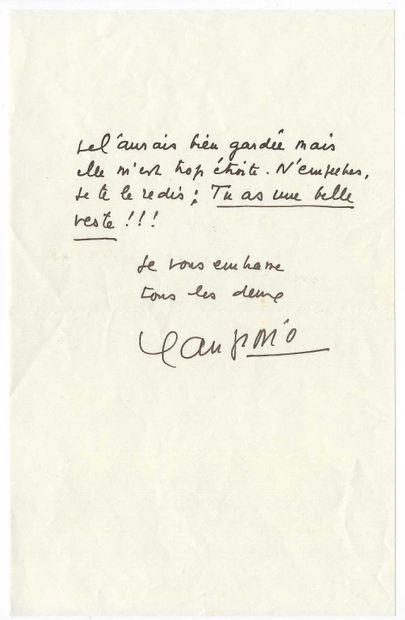 Je l'aurais bien gardée mais
elle m'est trop étroite. N'empêche,
Je te le redis ; Tu as une belle
veste !!!
Je vous embrasse
tous les deux